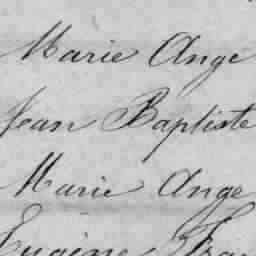 Marie Ange
Jean Baptiste
Marie Ange
Eugène